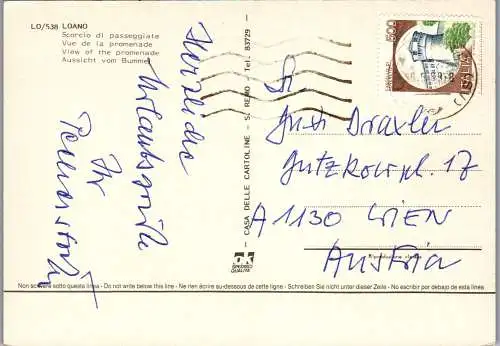 LO/538 LOANO
Scorcio di passeggiata
Vue de la promenade
View of the promenade
Aussicht vom Bummel
Herzliche
Urlaubsgrüße
Ihr
CASA DELLE CARTOLINE - S. REMO - Tel. 83729
500
ITALIA
Gusti Draxler
Gutzkowpl. 17
A 1130 WIEN
AUSTRIA
Riproduzione vietata
Non scrivere sotto questa linea - Do not write below this line - Ne rien écrire au-dessous de cette ligne - Schreiben Sie nicht unter dieser Zeile - No escribir por debajo de esta línea